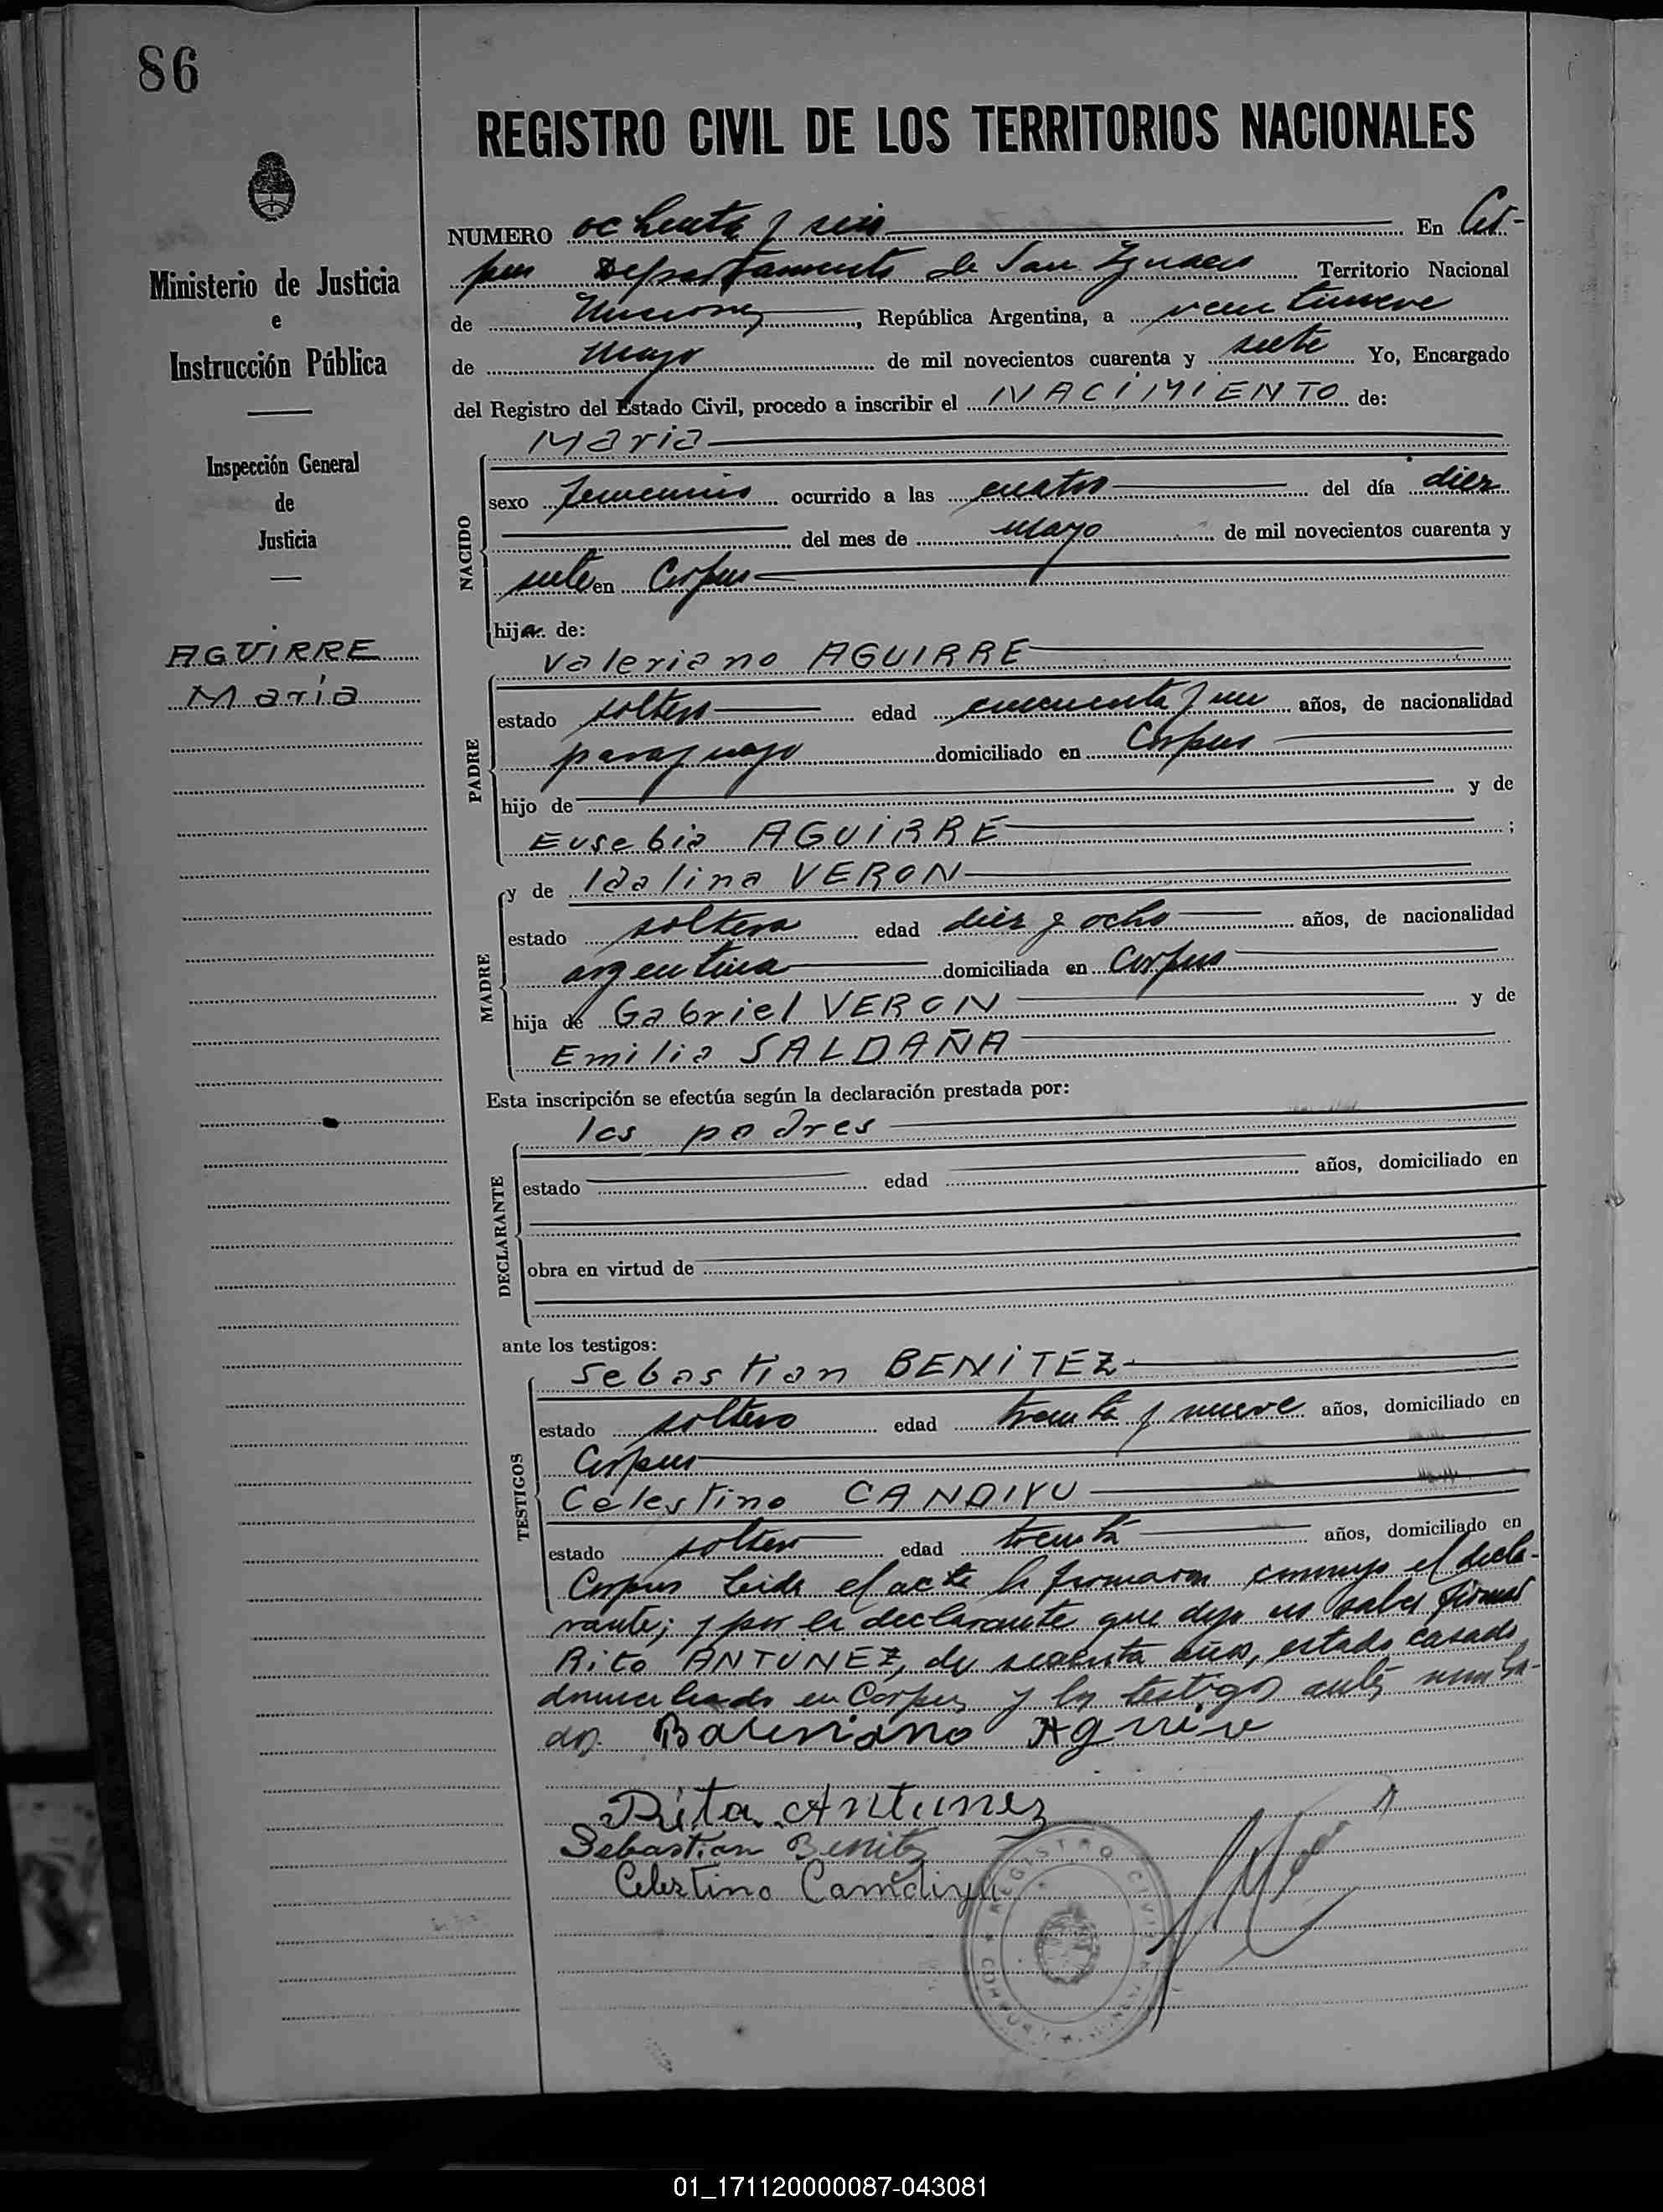 86
REGISTRO CIVIL DE LOS TERRITORIOS NACIONALES
Ministerio de Justicia
e
Instrucción Pública
Inspección General
de
Justicia
AGUIRRE
Maria
NUMERO ochenta y seis En Cor-
pus Departamento de San Ignacio Territorio Nacional
de Misiones, República Argentina, a veintinueve
de Mayo de mil novecientos cuarenta y siete Yo, Encargado
del Registro del Estado Civil, procedo a inscribir el NACIMIENTO de:
NACIDO
Maria
sexo femenino ocurrido a las cuatro del día diez
del mes de mayo de mil novecientos cuarenta y
siete en Corpus
hija de:
PADRE
Valeriano AGUIRRE
estado soltero edad cincuenta y un años, de nacionalidad
paraguayo domiciliado en Corpus
hijo de y de
Eusebia AGUIRRE ;
MADRE
y de Idalina VERON
estado soltera edad diez y ocho años, de nacionalidad
argentina domiciliada en Corpus
hija de Gabriel VERON y de
Emilia SALDAÑA
Esta inscripción se efectúa según la declaración prestada por:
DECLARANTE
los padres
estado edad años, domiciliado en
obra en virtud de
ante los testigos:
TESTIGOS
Sebastian BENITEZ
estado soltero edad treinta y nueve años, domiciliado en
Corpus
Celestino CANDIYU
estado soltero edad treinta años, domiciliado en
Corpus Leida el acta la firmaron conmigo el decla-
rante; y por la declarante que dijo no saber firmar
Rito ANTUNEZ, de sesenta años, estado casado,
domiciliado en Corpus y los testigos antes nombra-
dos. Baleriano Aguire
Rita Antunez
Sebastian Benitez
Celestino Candiyu
REGISTRO CIVIL
01_171120000087-043081